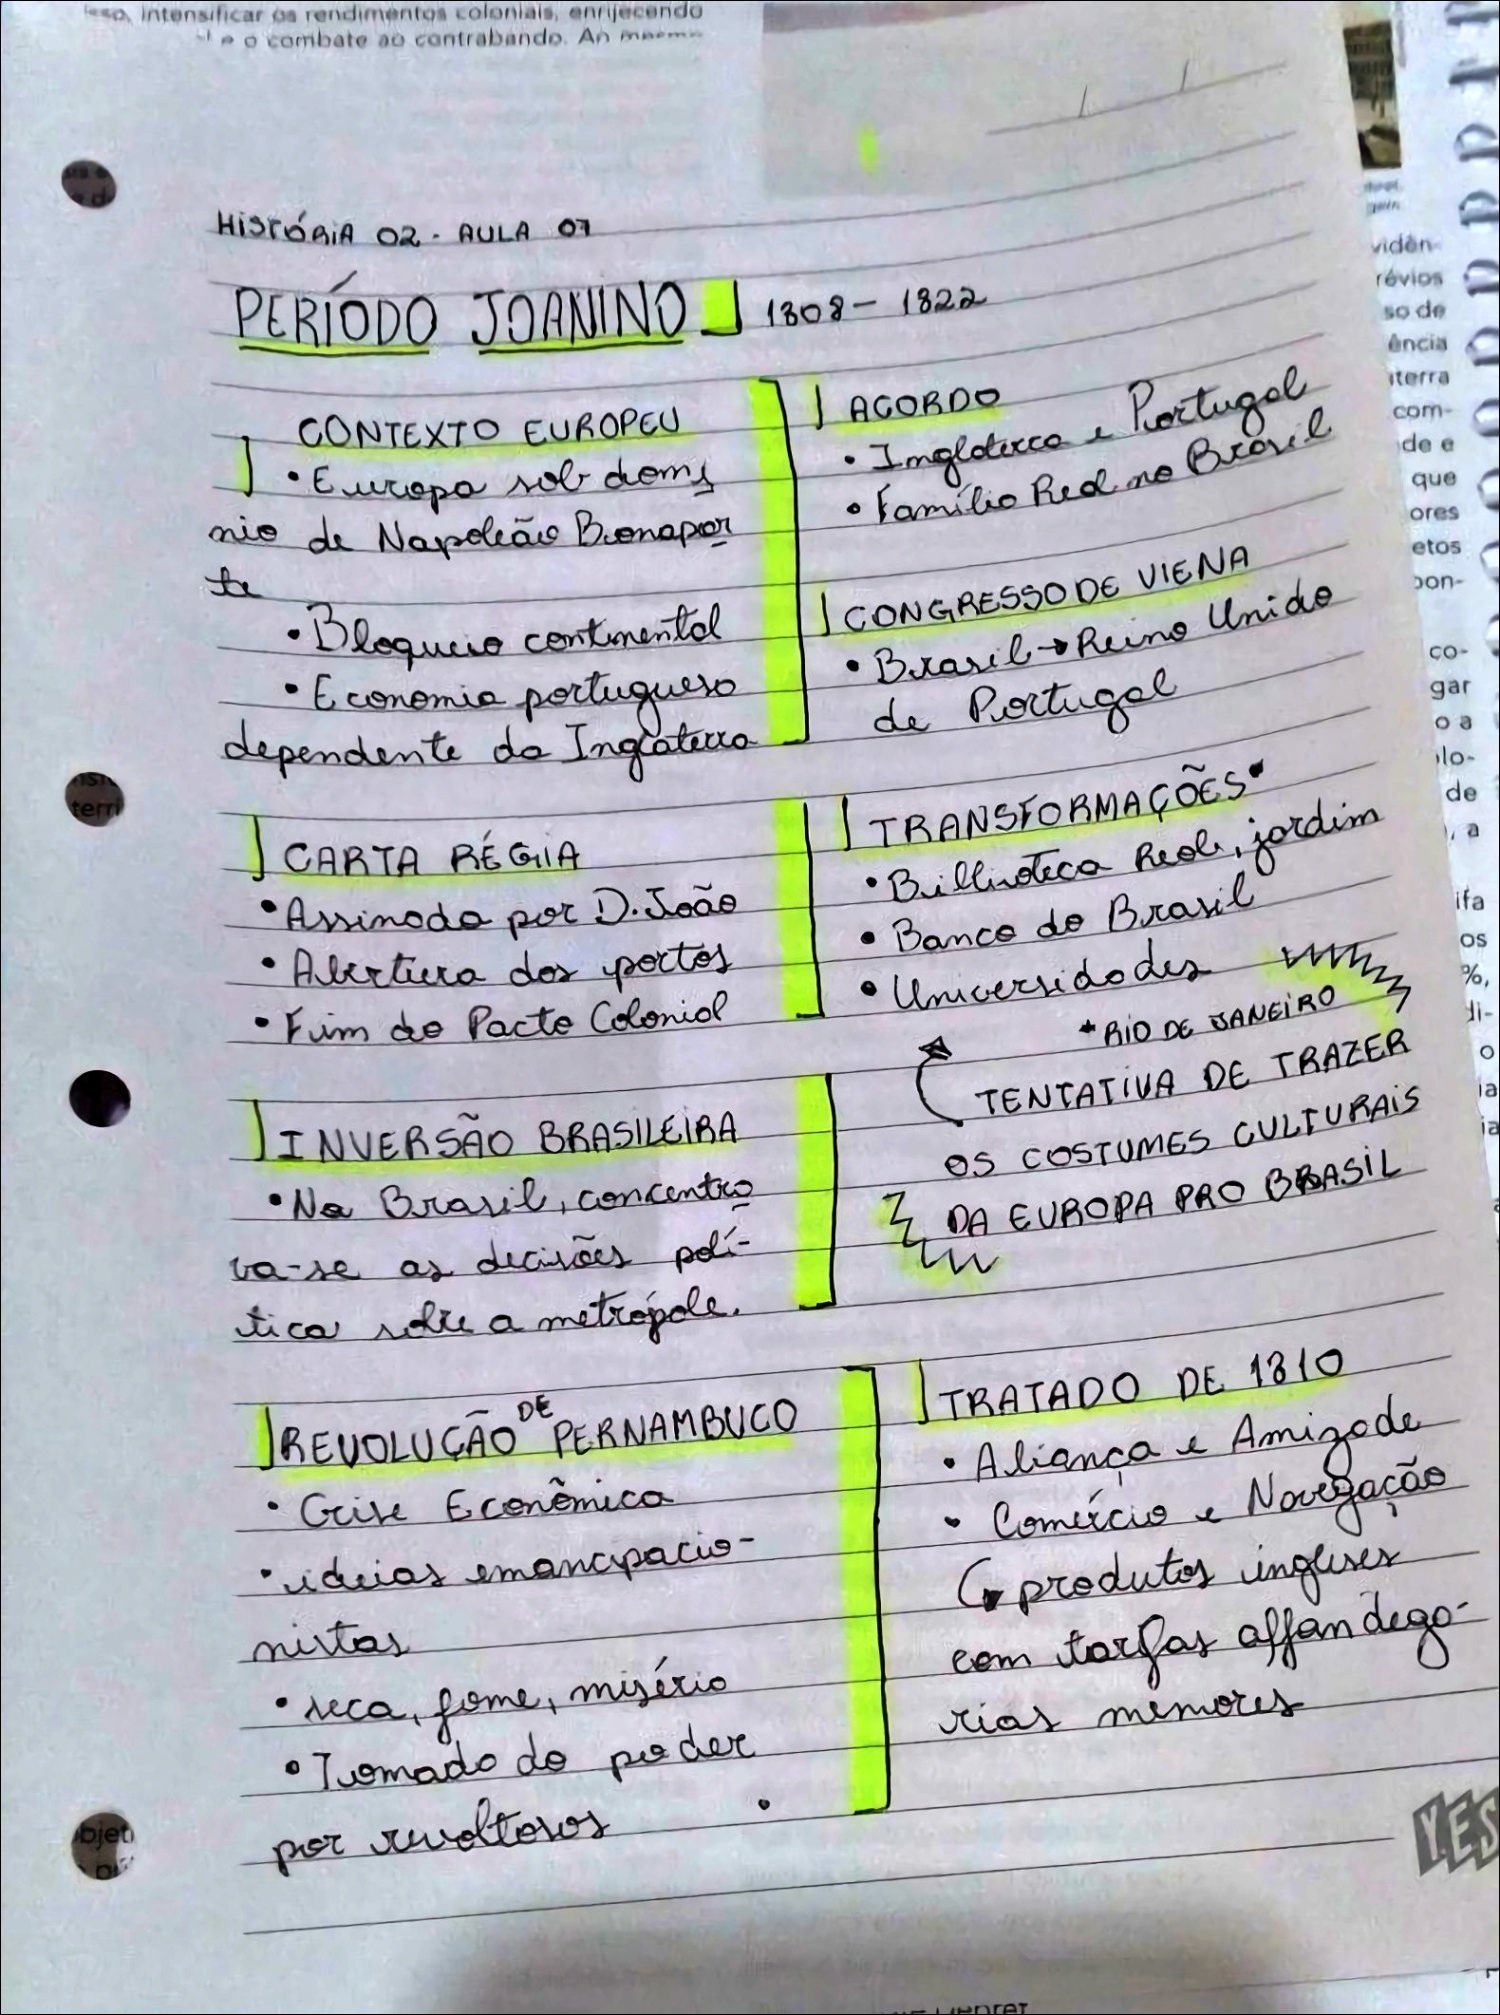 isso, intensificar os rendimentos coloniais, enrijecendo
e o combate ao contrabando. Ao mesmo
HISTÓRIA 02 - AULA 07
PERÍODO JOANINO 1808 - 1822
CONTEXTO EUROPEU
• Europa sob domí
nio de Napoleão Bonapar
te
• Bloqueio continental
• Economia portuguesa
dependente da Inglaterra
ACORDO
• Inglaterra e Portugal
• Família Real no Brasil
CONGRESSO DE VIENA
• Brasil → Reino Unido
de Portugal
CARTA RÉGIA
• Assinada por D. João
• Abertura dos portos
• Fim do Pacto Colonial
TRANSFORMAÇÕES*
• Biblioteca Real, jardim
• Banco do Brasil
• Universidades
* RIO DE JANEIRO
TENTATIVA DE TRAZER
OS COSTUMES CULTURAIS
DA EUROPA PRO BRASIL
INVERSÃO BRASILEIRA
• No Brasil, concentra
va-se as decisões polí-
tica sobre a metrópole.
REVOLUÇÃO DE PERNAMBUCO
• Crise Econômica
• ideias emancipacio-
nistas
• seca, fome, miséria
• Tomada do poder
por revoltosos
TRATADO DE 1810
• Aliança e Amizade
• Comércio e Navegação
↳ produtos ingleses
com tarifas alfandega-
rias menores
YES
vidên-
révios
so de
ência
iterra
com-
de e
que
ores
etos
pon-
co-
gar
o a
de
, a
ifa
os
%,
di-
o
ia